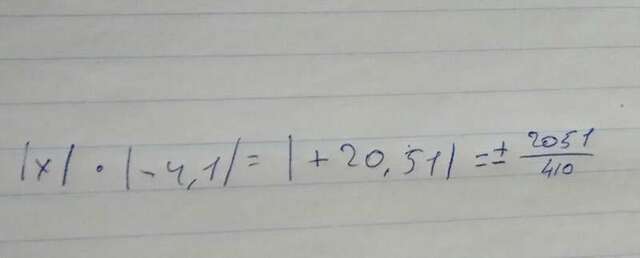 |x| · |-4,1| = |+20,51| = ± 2051/410